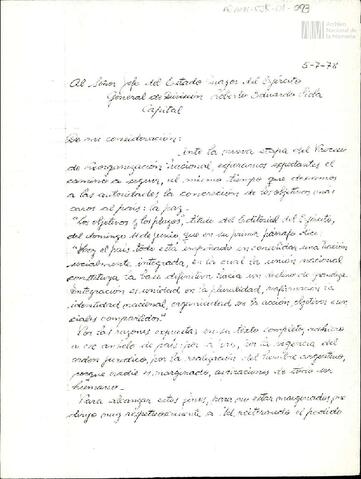 Archivo
Nacional de
la Memoria
5-7-78
Al Señor Jefe del Estado Mayor del Ejército
General de División Roberto Eduardo Viola
Capital
De mi consideración:
Ante la nueva etapa del Proceso
de Reorganización Nacional, esperamos expectantes el
camino a seguir, al mismo tiempo que deseamos
a las autoridades la concreción de los objetivos más
caros al país: la paz.
"Los objetivos y los plazos", título del Editorial del
del domingo de junio, que en su primer párrafo dice:
"Hoy el país todo está empeñado en consolidar una Nación
socialmente integrada, en la cual la unión nacional
constituya la base definitiva hacia un destino de grandeza.
Integración es unidad en la pluralidad, reafirmación de
identidad nacional, organicidad en la acción, objetivos esen-
ciales compartidos."
Por las razones expuestas en su texto completo,
ese anhelo de país por la vigencia del
orden jurídico, por la realización del hombre argentino,
porque nadie es marginado, aspiraciones de todo ser
humano.
Para alcanzar estos fines, para no estar marginados, me
dirijo muy respetuosamente a Ud. reiterando el pedido